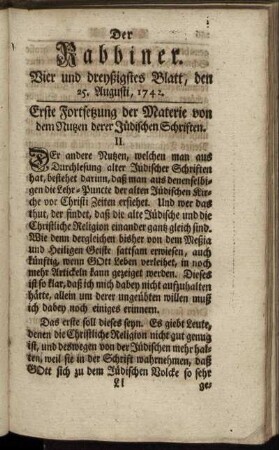 Der
Rabbiner.
Vier und dreyßigstes Blatt, den
25. Augusti, 1742.
Erste Fortsetzung der Materie von
dem Nutzen derer Jüdischen Schriften.
II.
DEr andere Nutzen, welchen man aus
Durchlesung alter Jüdischer Schriften
hat, bestehet darum, daß man aus denenselbi-
gen die Lehr-Puncte der alten Jüdischen Kir-
che vor Christi Zeiten ersiehet. Und wer das
thut, der findet, daß die alte Jüdische und die
Christliche Religion einander gantz gleich sind.
Wie denn dergleichen bisher von dem Meßia
und Heiligen Geiste sattsam erwiesen, auch
künftig, wenn GOtt Leben verleihet, in noch
mehr Artickeln kann gezeiget werden. Dieses
ist so klar, daß ich mich dabey nicht aufzuhalten
hätte, allein um derer ungeübten willen muß
ich dabey noch einiges erinnern.
Das erste soll dieses seyn. Es giebt Leute,
denen die Christliche Religion nicht gut genug
ist, und deswegen von der Jüdischen mehr hal-
ten, weil sie in der Schrift wahrnehmen, daß
GOtt sich zu dem Jüdischen Volcke so sehr
Ll ge-